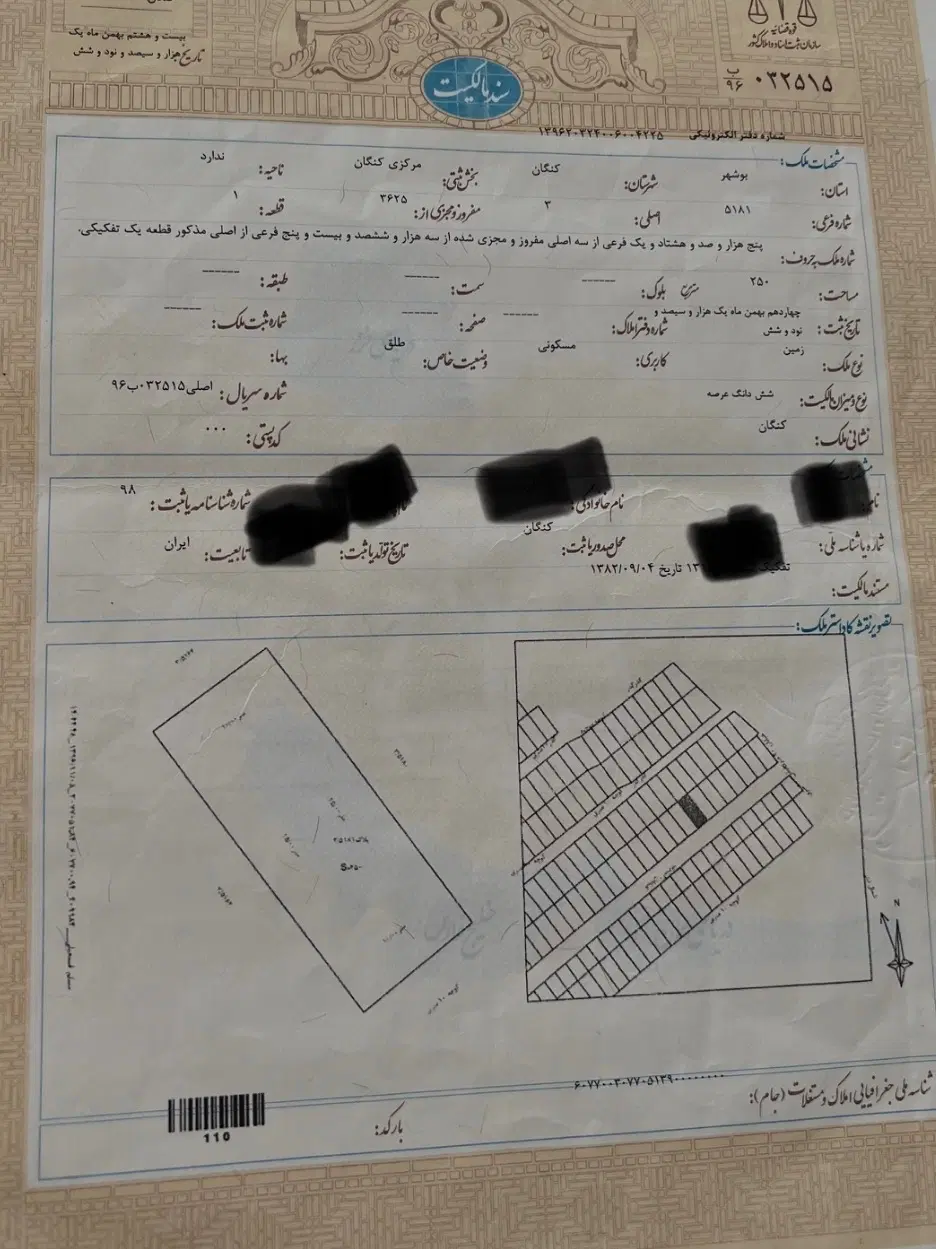 بیست و هشتم بهمن ماه یک
تاریخ هزار و سیصد و نود و شش
قوه قضائیه
سازمان ثبت اسناد و املاک کشور
۰۳۲۵۱۵ ب ۹۶
سند مالکیت
شماره دفتر الکترونیکی ۱۳۹۶۲۰۳۲۴۰۰۶۰۰۴۲۲۵
مشخصات ملک:
استان: بوشهر شهرستان: کنگان بخش ثبتی: مرکزی کنگان ناحیه: ندارد
شماره فرعی: ۵۱۸۱ اصلی: ۳ مفروز و مجزی از: ۳۶۲۵ قطعه: ۱
شماره ملک به حروف: پنج هزار و صد و هشتاد و یک فرعی از سه اصلی مفروز و مجزی شده از سه هزار و ششصد و بیست و پنج فرعی از اصلی مذکور قطعه یک تفکیکی.
مساحت: ۲۵۰ مترمربع بلوک: ------ سمت: ------ طبقه: ------
تاریخ ثبت: چهاردهم بهمن ماه یک هزار و سیصد و نود و شش شماره دفتر املاک: ------ صفحه: ------ شماره ثبت ملک: ------
نوع ملک: زمین کاربری: مسکونی وضعیت خاص: طلق بها:
نوع و میزان مالکیت: شش دانگ عرصه شماره سریال: اصلی۰۳۲۵۱۵ب۹۶
نشانی ملک: کنگان کدپستی: ۰۰۰
نام: نام خانوادگی: شماره شناسنامه یا ثبت: ۹۸
شماره یا شناسه ملی: محل صدور یا ثبت: کنگان تاریخ تولد یا ثبت: تابعیت: ایران
مستند مالکیت: تفکیک ۱۳ تاریخ ۱۳۸۲/۰۹/۰۴
تصویر نقشه کاداستر ملک:
N
شناسه ملی جغرافیایی املاک و مستغلات (جام): ۶۰۷۷۰۰۳۰۷۷۰۵۱۳۹۰۰۰۰۰۰۰۰
بارکد:
110